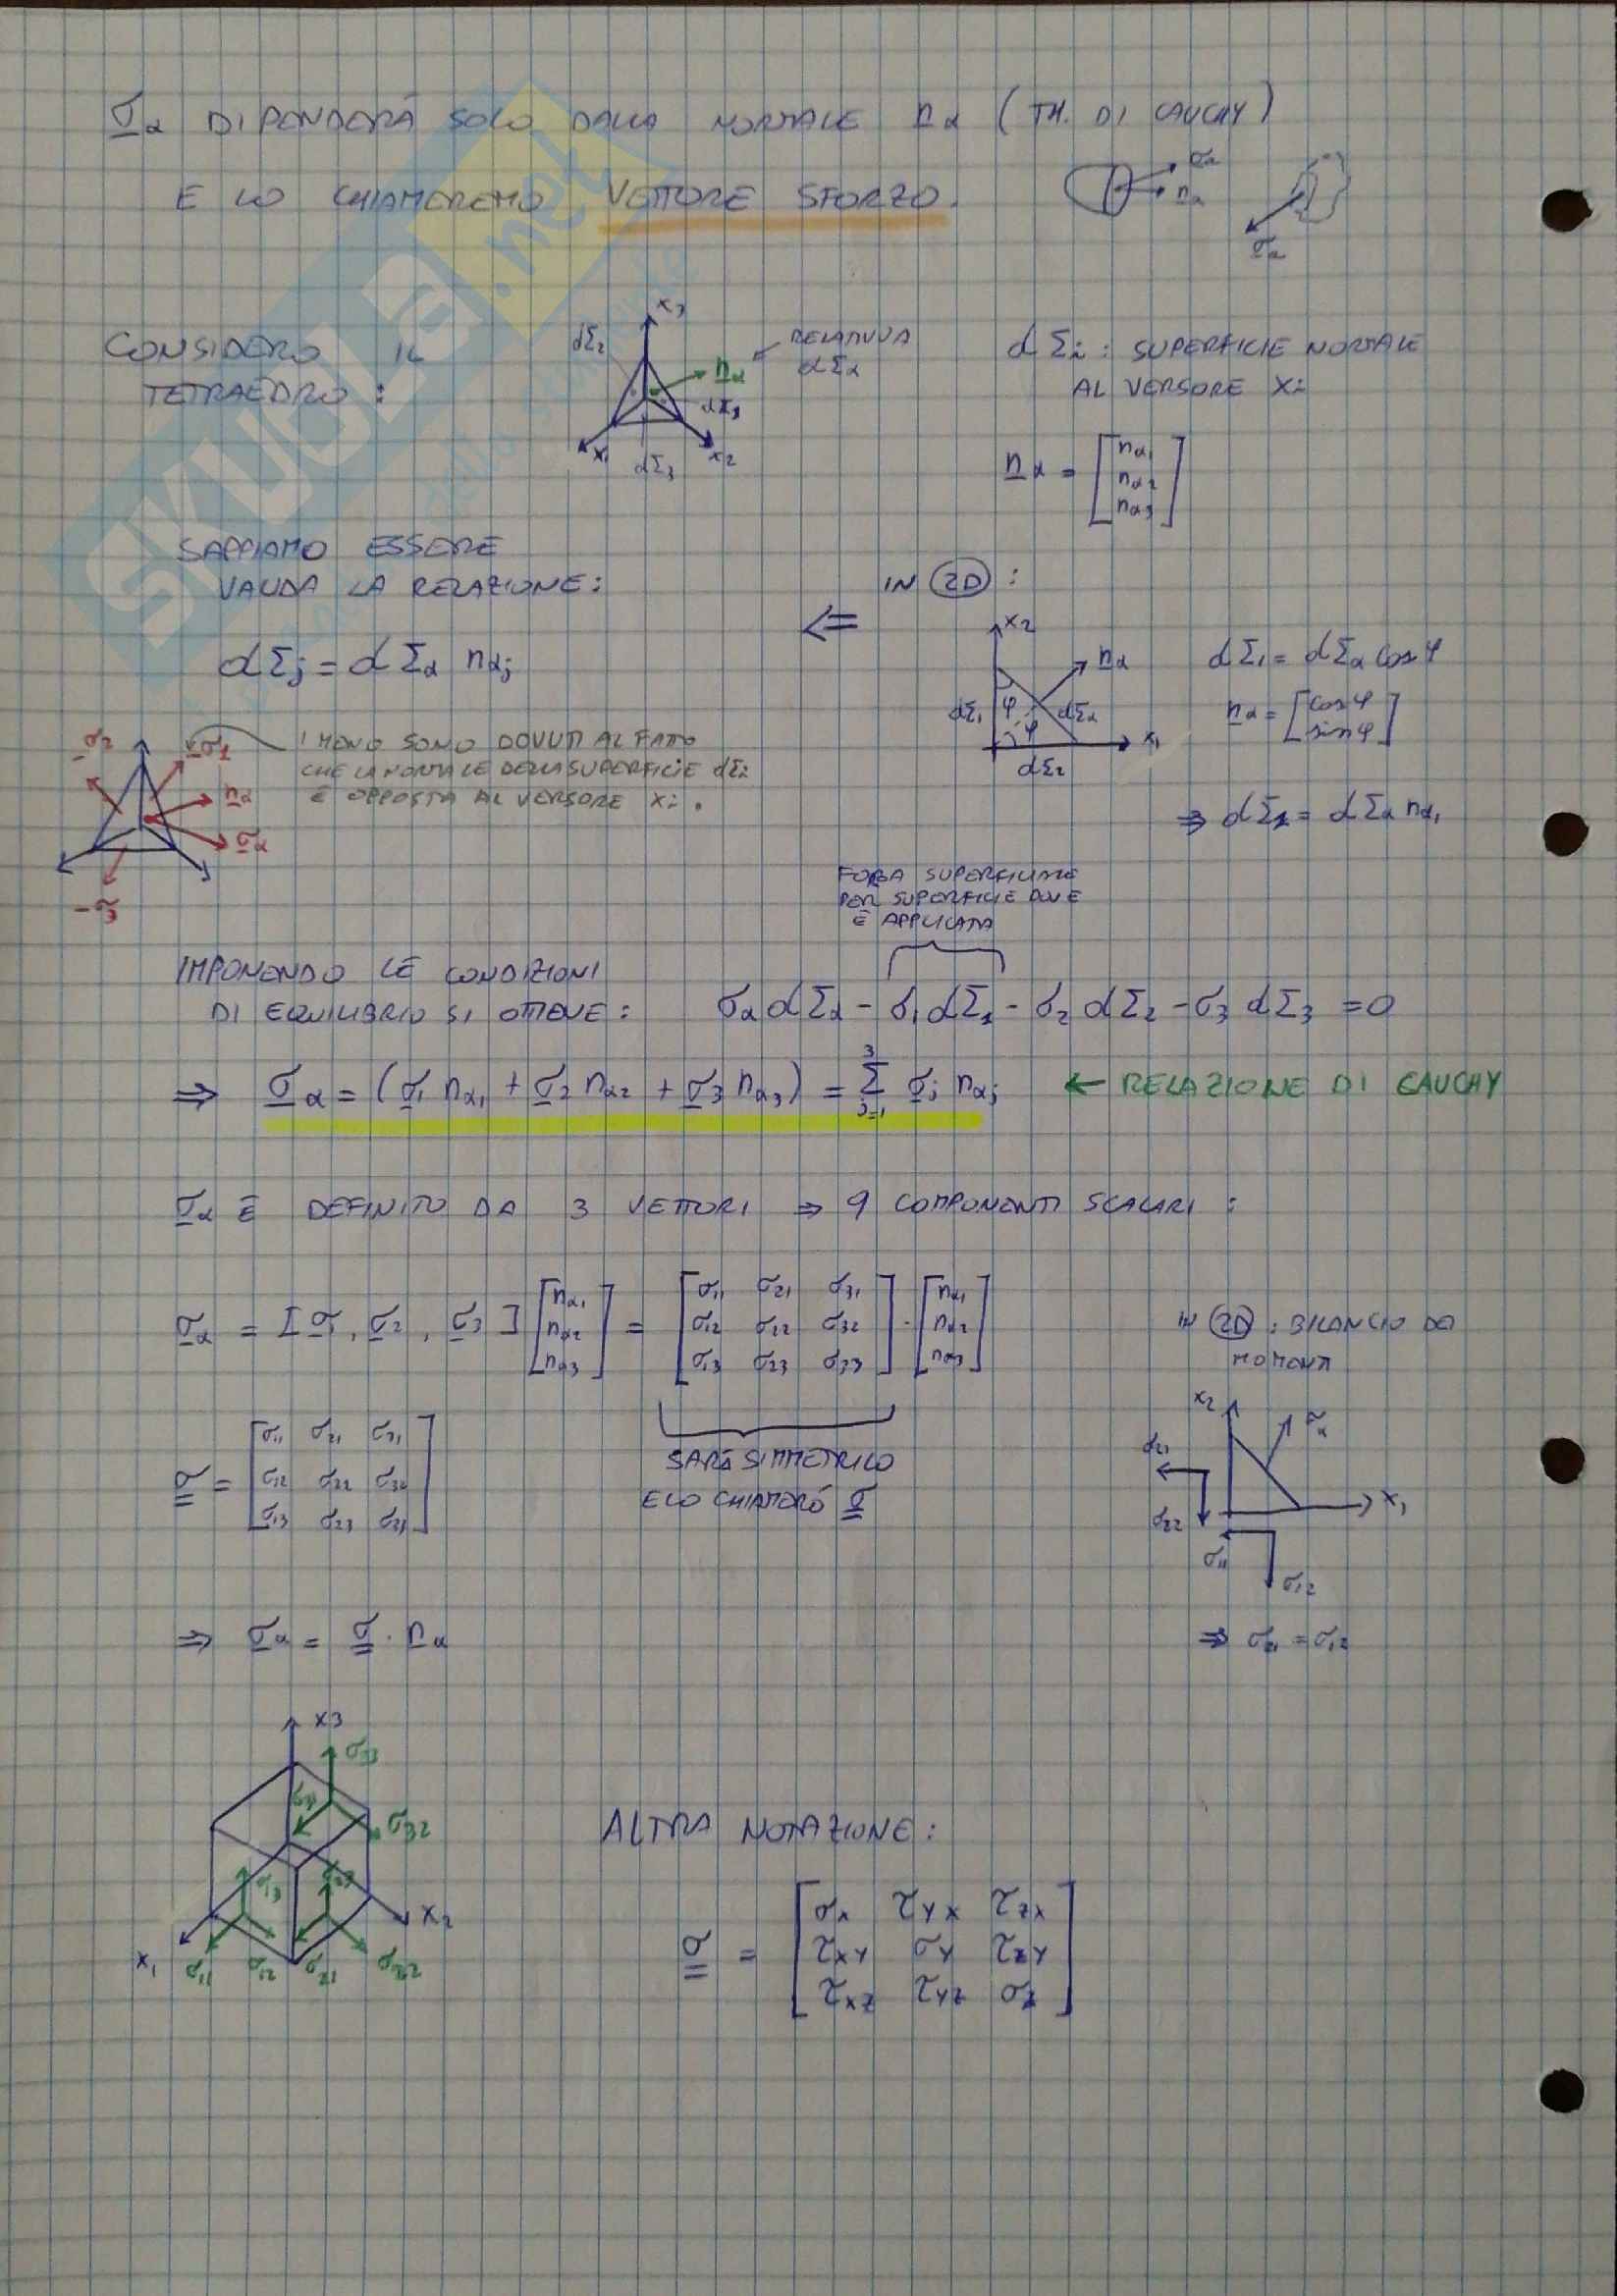 σα DIPENDERÀ SOLO DALLA NORMALE nα (TH. DI CAUCHY)
E LO CHIAMEREMO VETTORE SFORZO.
σα
nα
σα
CONSIDERO IL
TETRAEDRO:
x3
dΣ2
nα
RELATIVA
dΣα
x1
dΣ3
x2
dΣi: SUPERFICIE NORMALE
AL VERSORE Xi
nα = [nα1 nα2 nα3]
SAPPIAMO ESSERE
VALIDA LA RELAZIONE:
dΣj = dΣα nαj
<=
IN 2D:
x2
nα
dΣ1
φ
dΣα
φ
x1
dΣ2
dΣ1 = dΣα cosφ
nα = [cosφ sinφ]
⇒ dΣ1 = dΣα nα1
-σ2
-σ1
nα
σα
-σ3
I MENO SONO DOVUTI AL FATTO
CHE LA NORMALE DELLA SUPERFICIE dΣi
È OPPOSTA AL VERSORE Xi.
FORZA SUPERFICIALE
PER SUPERFICIE DOVE
È APPLICATA
IMPONENDO LE CONDIZIONI
DI EQUILIBRIO SI OTTIENE: σα dΣα - σ1 dΣ1 - σ2 dΣ2 - σ3 dΣ3 = 0
⇒ σα = (σ1 nα1 + σ2 nα2 + σ3 nα3) = Σ j=1 3 σj nαj ← RELAZIONE DI CAUCHY
σα È DEFINITO DA 3 VETTORI ⇒ 9 COMPONENTI SCALARI:
σα = [σ1, σ2, σ3] [nα1 nα2 nα3] = [σ11 σ21 σ31
σ12 σ22 σ32
σ13 σ23 σ33] · [nα1 nα2 nα3]
SARÀ SIMMETRICO
E LO CHIAMERÒ σ
σ = [σ11 σ21 σ31
σ12 σ22 σ32
σ13 σ23 σ33]
IN 2D: BILANCIO DEI
MOMENTI
x2
σα
σ21
x1
σ22
σ11
σ12
⇒ σ21 = σ12
⇒ σα = σ · nα
x3
σ33
σ31
σ32
σ13
σ23
x2
x1
σ11
σ12
σ21
σ22
ALTRA NOTAZIONE:
σ = [σx τyx τzx
τxy σy τzy
τxz τyz σz]
SKUOLA.net